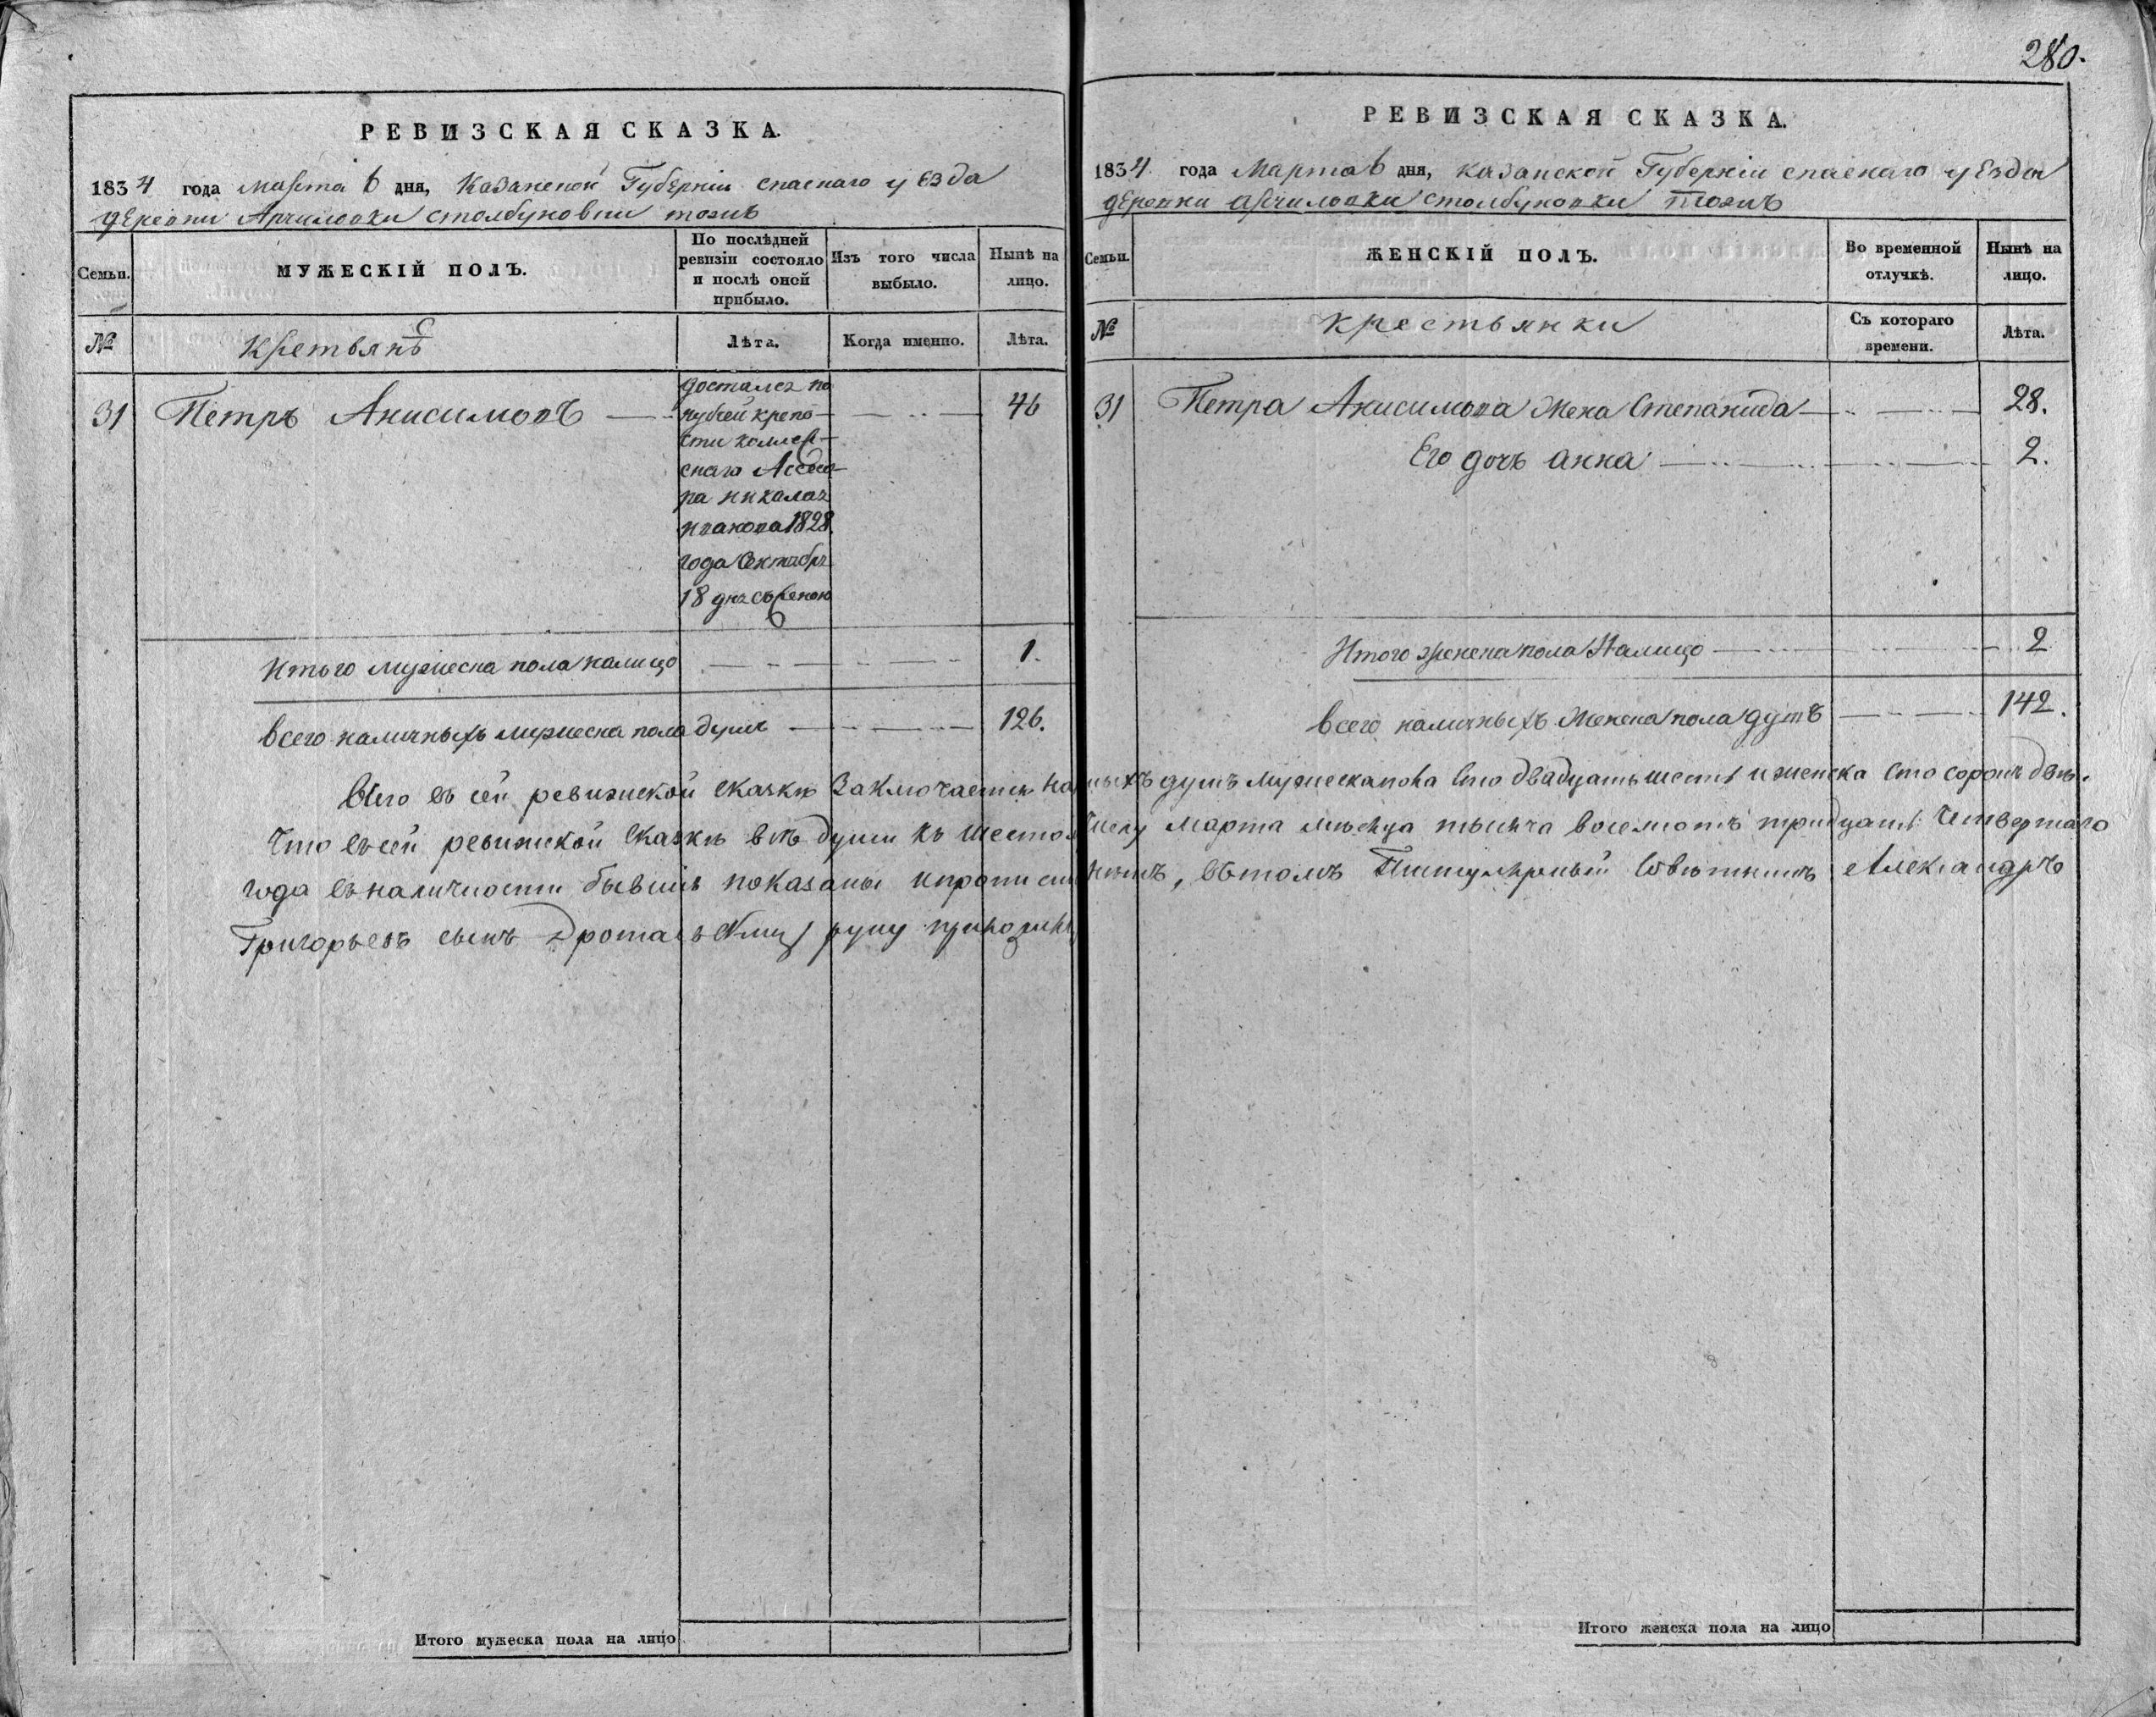 280.
РЕВИЗСКАЯ СКАЗКА.
1834 года марта 6 дня, Казанской Губернии спаскаго уезда
деревни Арчиловки столбуховки тожъ
Семьи.
МУЖЕСКІЙ ПОЛЪ.
По послѣдней ревизіи состояло и послѣ оной прибыло.
Изъ того числа выбыло.
Нынѣ на лицо.
№
Кретьянѣ
Лѣта.
Когда именно.
Лѣта.
31 Петръ Анисимовъ 46
досталса по
купчей крепо
сти коллеж
скаго Ассесо
ра николая
иванова 1828
года Октября
18 дня съ женою
Итого мужеска пола налицо 1.
всего наличныхъ мужеска пола душъ 126.
РЕВИЗСКАЯ СКАЗКА.
1834 года Марта 6 дня, казанской Губерніи спаскаго уезда
деревни арчиловки столбуховки тожъ
Семьи.
ЖЕНСКІЙ ПОЛЪ.
Во временной отлучкѣ.
Нынѣ на лицо.
№
крестьянки
Съ котораго времени.
Лѣта.
31 Петра Анисимова Жена Степанида 28.
Его дочь анна 2.
Итого женска пола Налицо 2
всего наличныхъ Женска пола душъ 142.
Всего въ сей ревизской сказкѣ Заключается на ныхъ душъ мужеска пола Сто двадцать шесть и женска Сто сорокъ двѣ.
Что въ сей ревизской Сказкѣ всѣ души къ шестому числу Марта мѣсяца тысяча восемсотъ тридцать Четвертаго
года въ наличности бывшія показаны и прописныхъ нѣтъ, въ томъ Титулярный Совѣтникъ Александръ
Григорьевъ сынъ руку приложилъ
Итого мужеска пола на лицо
Итого женска пола на лицо